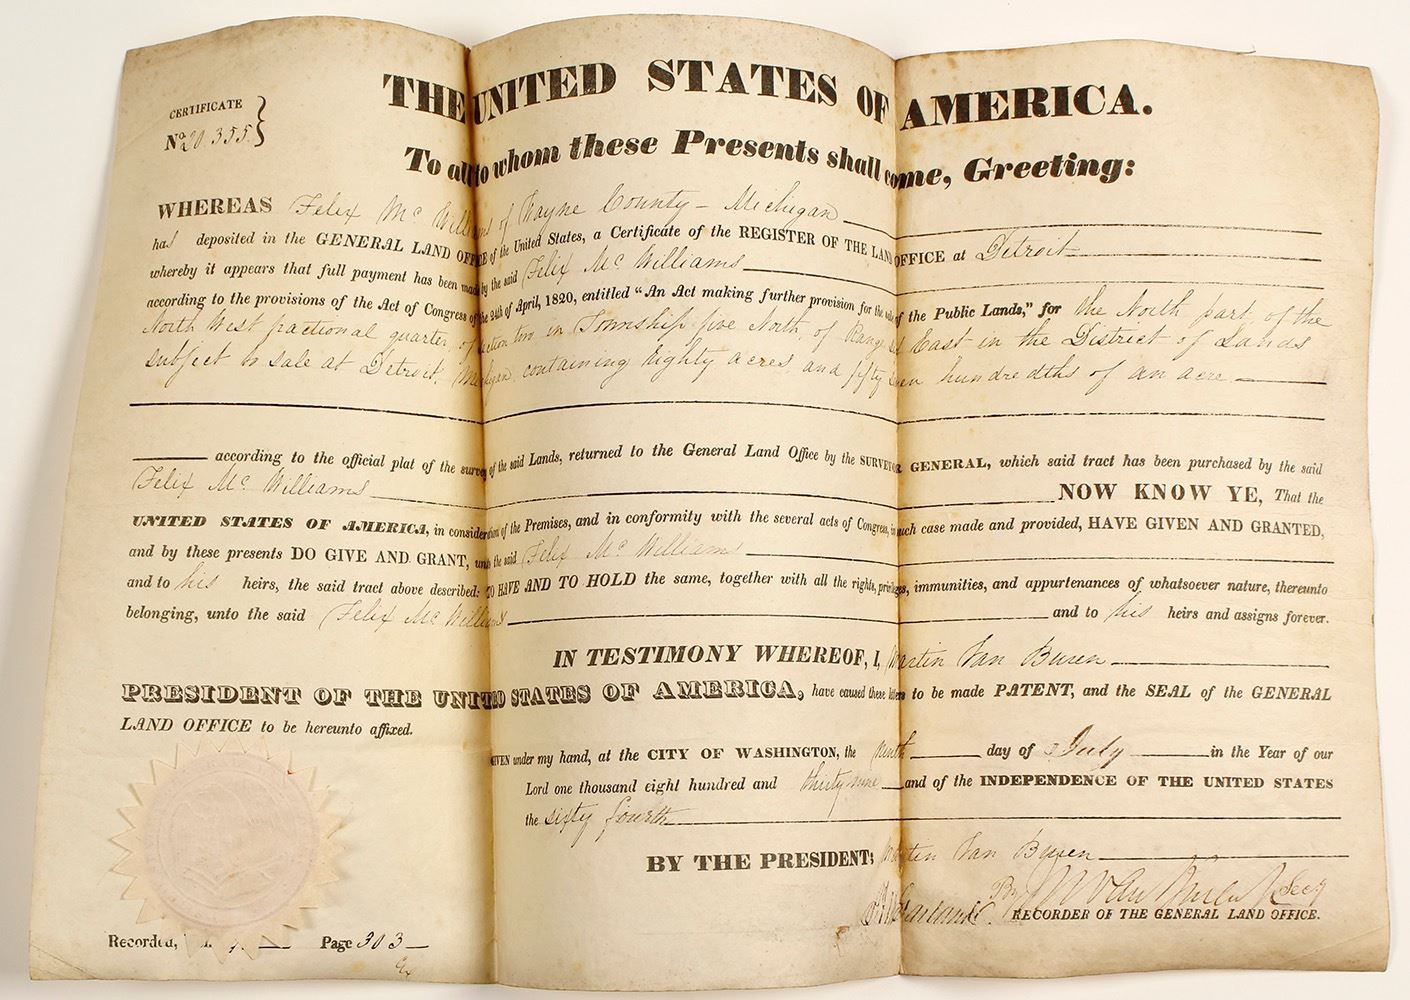 THE UNITED STATES OF AMERICA.
CERTIFICATE
No. 20.355.
To all to whom these Presents shall come, Greeting:
WHEREAS Felix Mc Williams of Wayne County - Michigan
has deposited in the GENERAL LAND OFFICE of the United States, a Certificate of the REGISTER OF THE LAND OFFICE at Detroit
whereby it appears that full payment has been made by the said Felix Mc Williams
according to the provisions of the Act of Congress of the 24th of April, 1820, entitled "An Act making further provision for the sale of the Public Lands," for the North part of the
North West fractional quarter, of Section two in Township five North, of Range East in the District of Lands
subject to sale at Detroit, Michigan, containing Eighty acres, and fifty hundredths of an acre
according to the official plat of the survey of the said Lands, returned to the General Land Office by the SURVEYOR GENERAL, which said tract has been purchased by the said
Felix Mc Williams NOW KNOW YE, That the
UNITED STATES OF AMERICA, in consideration of the Premises, and in conformity with the several acts of Congress, in such case made and provided, HAVE GIVEN AND GRANTED,
and by these presents DO GIVE AND GRANT, unto the said Felix Mc Williams
and to his heirs, the said tract above described: TO HAVE AND TO HOLD the same, together with all the rights, privileges, immunities, and appurtenances of whatsoever nature, thereunto
belonging, unto the said Felix Mc Williams and to his heirs and assigns forever.
IN TESTIMONY WHEREOF, I, Martin Van Buren
PRESIDENT OF THE UNITED STATES OF AMERICA, have caused these letters to be made PATENT, and the SEAL of the GENERAL
LAND OFFICE to be hereunto affixed.
GIVEN under my hand, at the CITY OF WASHINGTON, the ninth day of July in the Year of our
Lord one thousand eight hundred and thirty nine and of the INDEPENDENCE OF THE UNITED STATES
the sixty fourth
BY THE PRESIDENT: Martin Van Buren
By M Van Buren Jr Secy
RECORDER OF THE GENERAL LAND OFFICE.
Recorded, Page 303